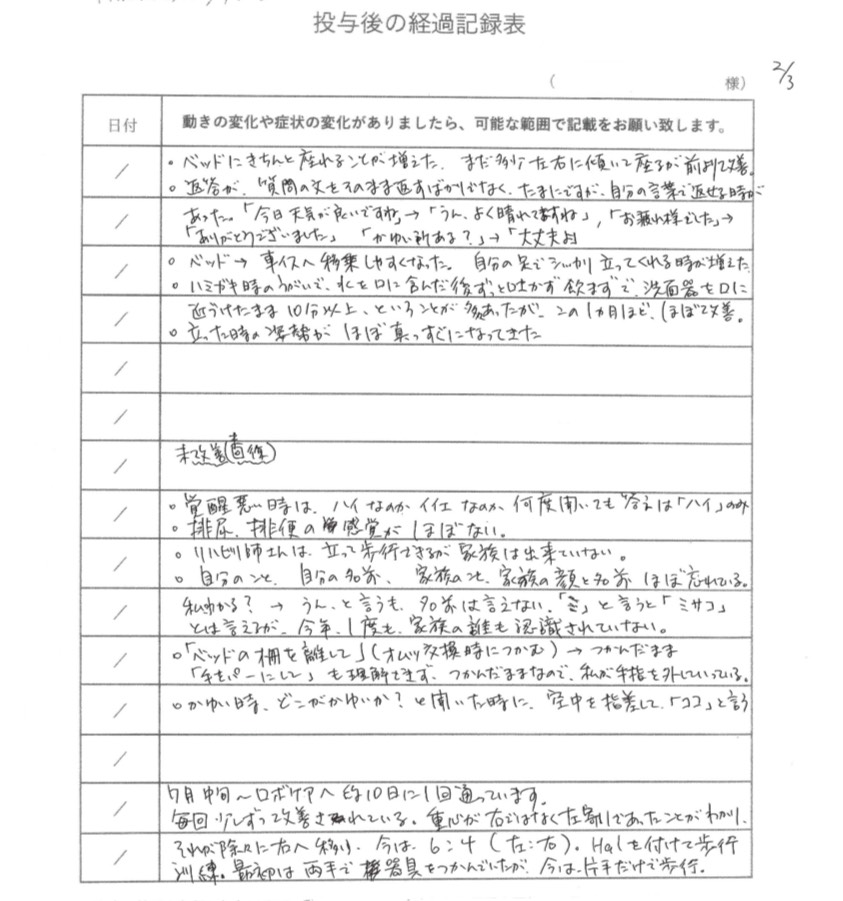 投与後の経過記録表
( 様)
2/3
日付 動きの変化や症状の変化がありましたら、可能な範囲で記載をお願い致します。
/ 。ベッドにきちんと座れることが増えた。まだ多少左右に傾いて座るが前より改善。
。返答が、質問の文をそのまま返すばかりでなく、たまにですが、自分の言葉で返せる時が
/ あった。「今日天気が良いですね」→「うん、よく晴れてますね」,「お疲れ様でした」→
「ありがとうございました」 「かゆい所ある?」→「大丈夫よ」
/ 。ベッド→車イスへ移乗しやすくなった。自分の足でシッカリ立ってくれる時が増えた
。ハミガキ時のうがいで、水を口に含んだ後ずっと吐かず飲まずで、洗面器を口に
/ 近づけたまま10分以上、ということが多々あったが、この1か月ほど、ほぼ改善。
。立った時の姿勢がほぼ真っすぐになってきた
/
/
/ 未改善(直後)
/ 。覚醒悪い時は、ハイなのかイイエなのか何度聞いても答えは「ハイ」のみ
。排尿、排便の感覚がほぼない。
/ 。リハビリ師さんは、立って歩行できるが家族は出来ていない。
。自分のこと、自分の名前、家族のこと、家族の顔と名前ほぼ忘れている。
/ 私わかる?→うん、と言うも、名前は言えない。「ミ」と言うと「ミサコ」
とは言えるが、今年、1度も、家族の誰も認識されていない。
/ 。「ベッドの柵を離して」(オムツ交換時につかむ)→つかんだまま
「手をパーにして」も理解できず、つかんだままなので、私が手指を外していっている。
/ 。かゆい時、どこがかゆいか?と聞いた時に、空中を指差して、「ココ」と言う
/
/ 7月中旬～ロボケアへ約10日に1回通っています。
毎回少しずつ改善されている。重心が右ではなく左寄りであったことがわかり、
/ それが除々に右へ移り、今は6:4(左:右)。Halを付けて歩行
訓練。最初は両手で器具をつかんでいたが、今は、片手だけで歩行。